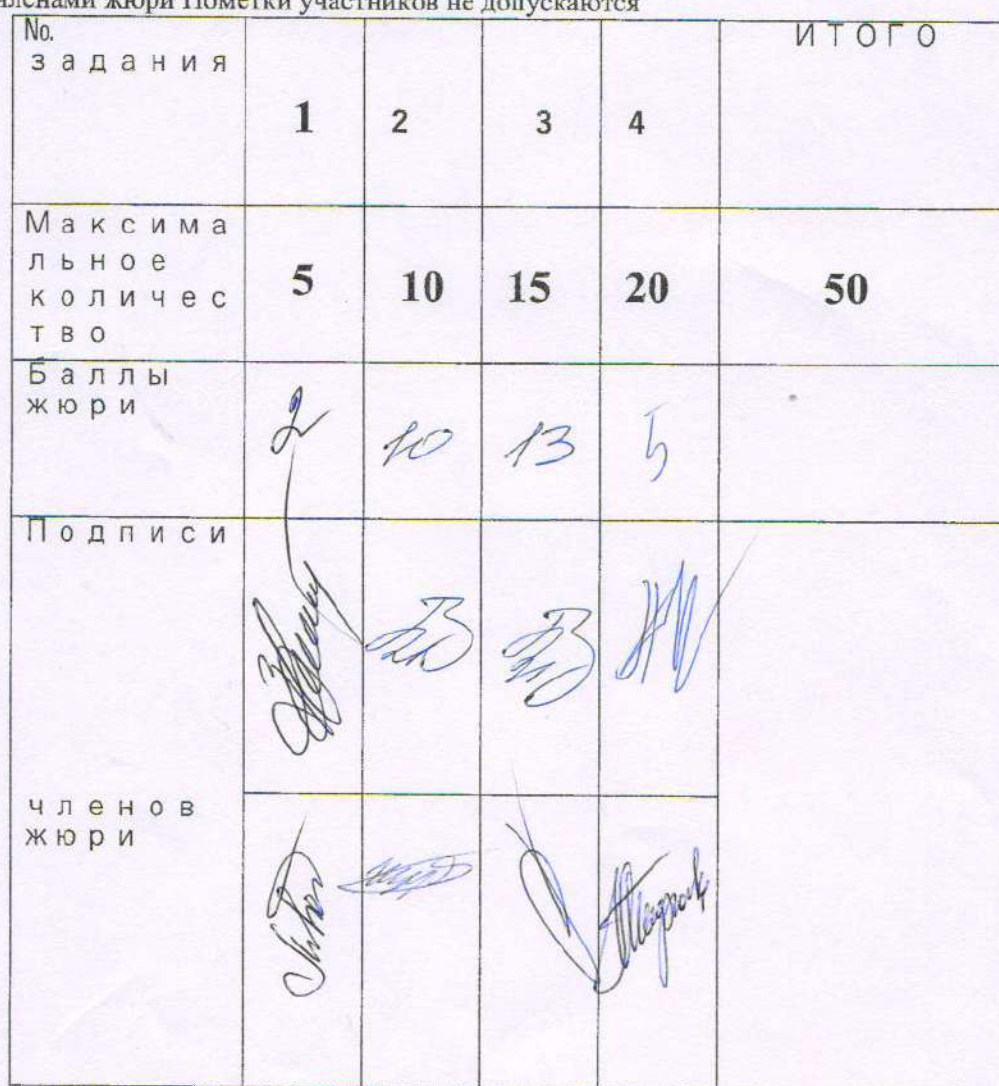 членами жюри Пометки участников не допускаются
No. ИТОГО
задания
1 2 3 4
Максима
льное
количес
тво
5 10 15 20 50
Баллы
жюри
2 10 13 5
Подписи
членов
жюри